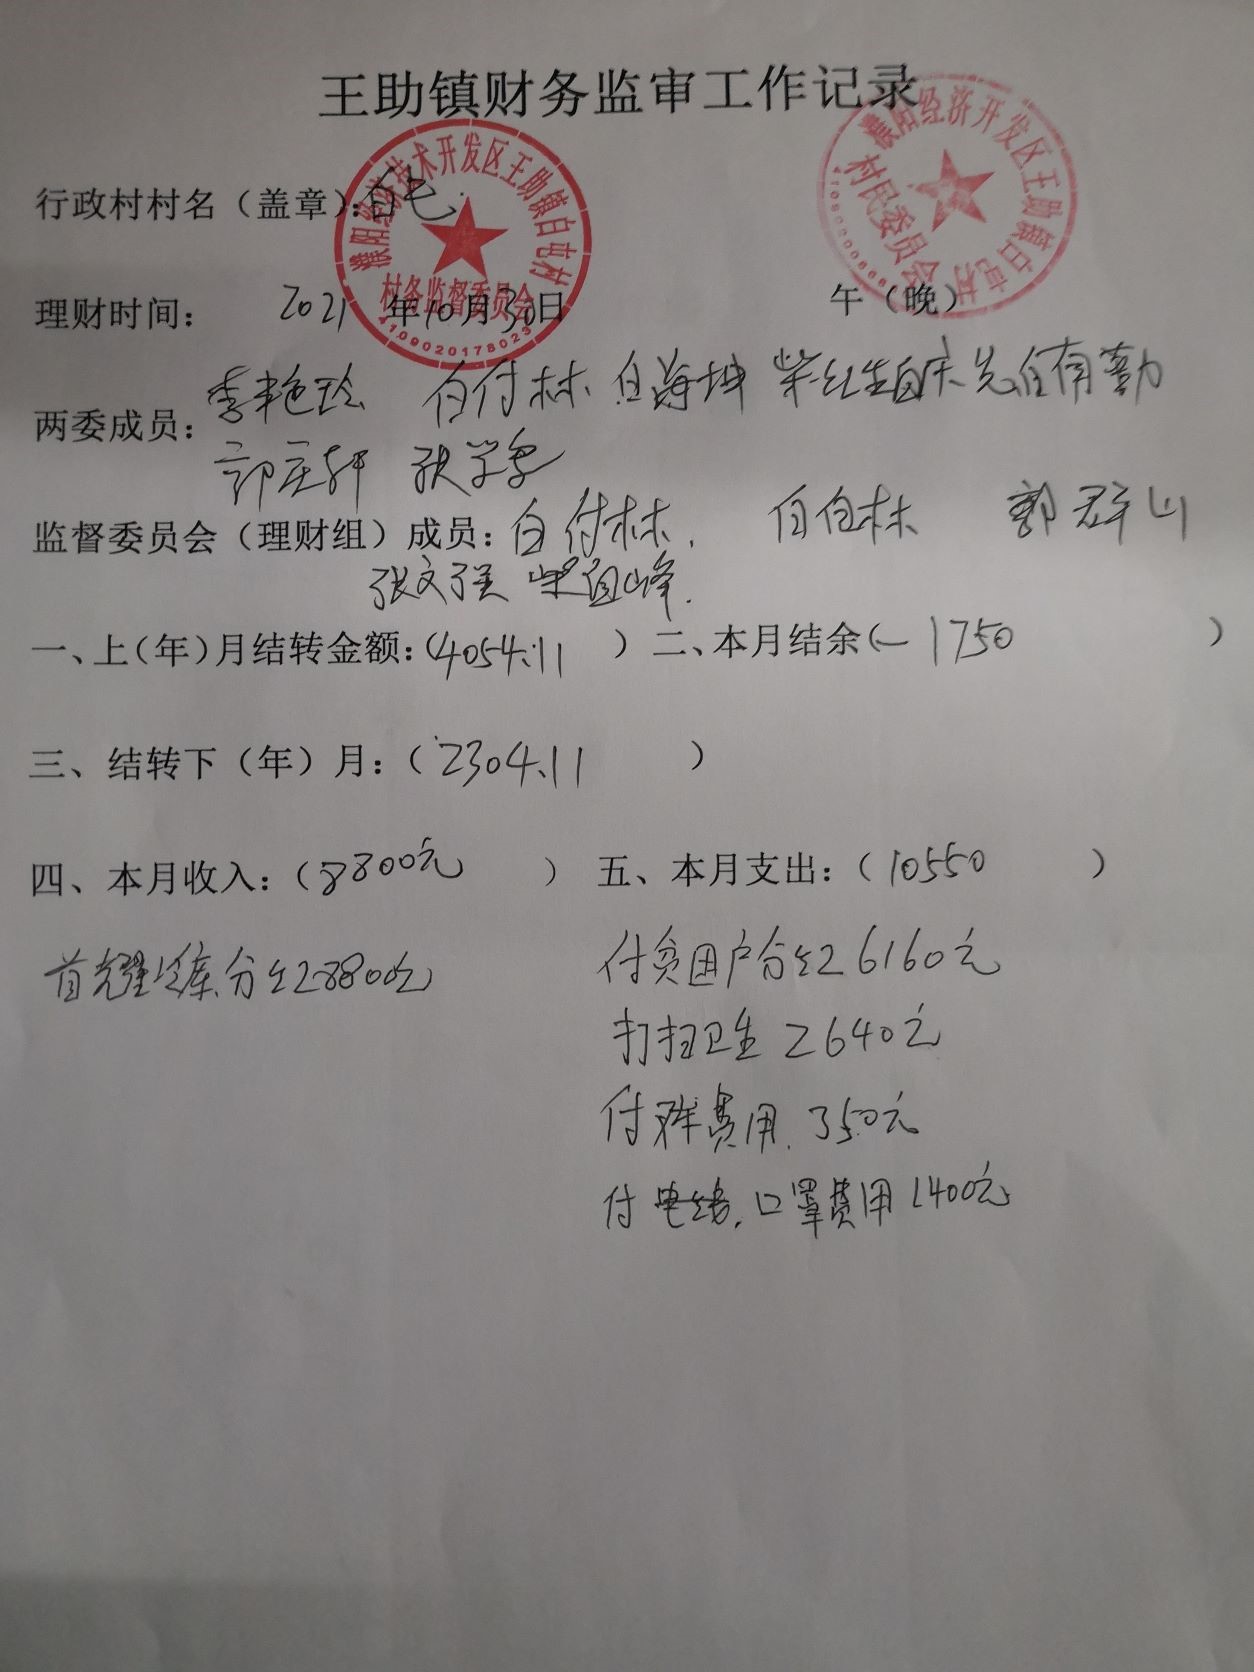 王助镇财务监审工作记录
濮阳经济技术开发区王助镇白屯村
村务监督委员会
4109020178023
濮阳经济开发区王助镇白屯村
村民委员会
行政村村名（盖章）：白屯
理财时间： 2021 年10月30日 午（晚）
两委成员：李艳玲 白付林 白海坤 柴红生 白庆先 白有勤
郭庄轩 张学雷
监督委员会（理财组）成员：白付林、 白自林 郭群山
张文强 柴道峰
一、上（年）月结转金额：（4054.11 ） 二、本月结余（-1750 ）
三、结转下（年）月：（2304.11 ）
四、本月收入：（8800元 ） 五、本月支出：（10550 ）
首光 分红8800元
付贫困户分红6160元
打扫卫生2640元
付 费用 350元
付 口罩费用1400元